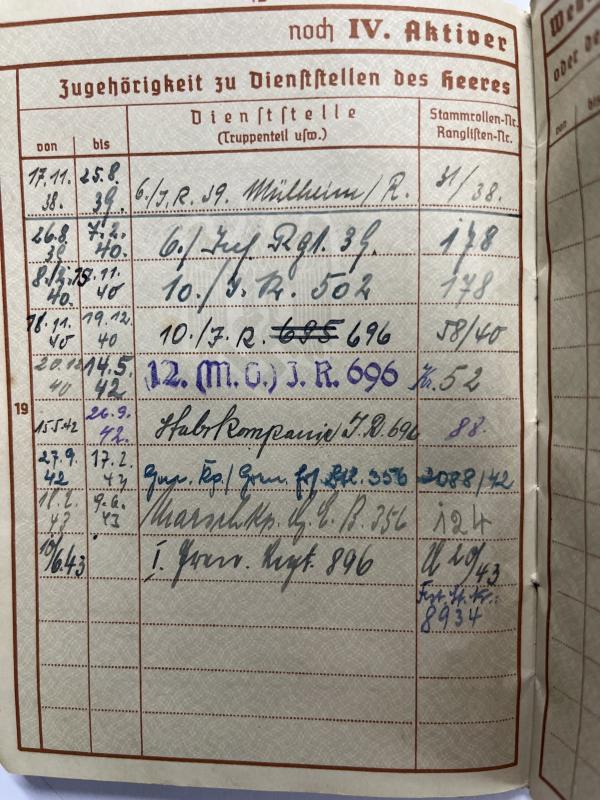 noch IV. Aktiver
Zugehörigkeit zu Dienststellen des Heeres
von bis Dienststelle (Truppenteil usw.) Stammrollen-Nr. Ranglisten-Nr.
17.11. 38. 25.8. 39. 6./J.R. 39. Mülheim/R. 31/38.
26.8. 39 7.2. 40. 6./Inf Rgt. 39. 178
40. 11. 40 10./J.R. 502 178
18.11. 40 19.12. 40 10./J.R. 695 696 58/40
40 14.5. 42 12. (M.G.) J.R. 696 52
15.5.42 26.9. 42. Stabskompanie J.R. 696 88.
19
27.9. 42 17.2. 43 Gen. Kp./Gren. 356 2088/42
43 43 Marschkp. E. B. 356 124
10/6.43 I. Gren. Regt. 896 20/43
8934
von